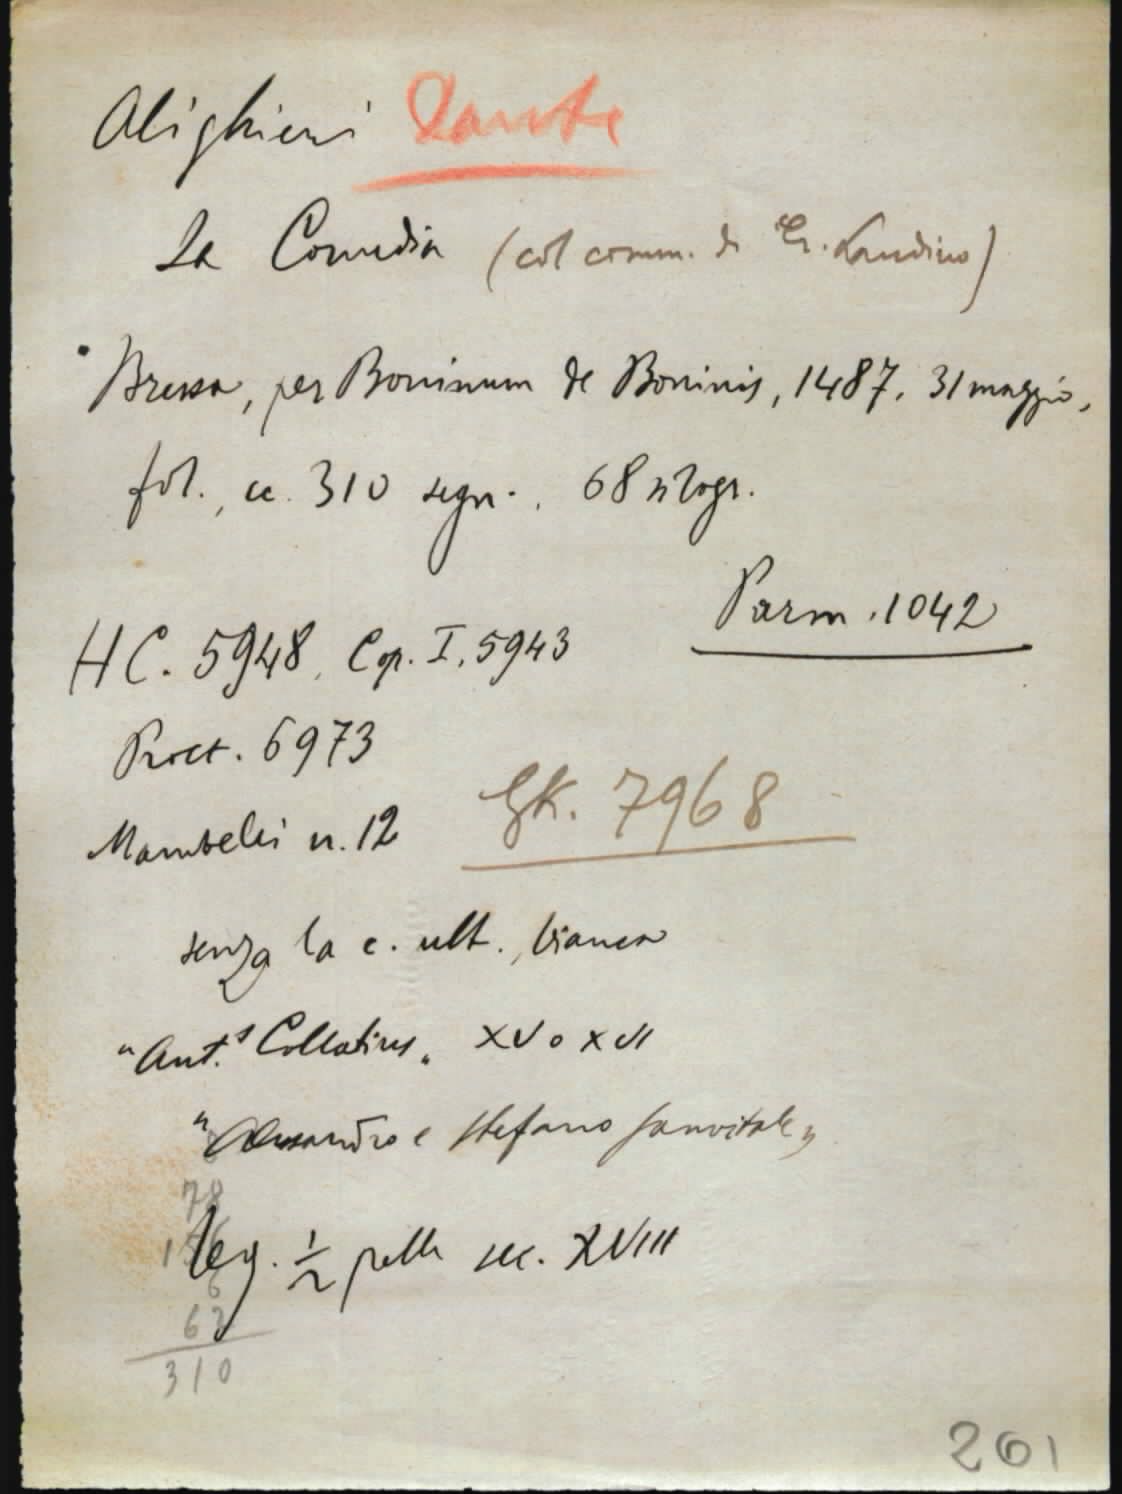 Alighieri Dante
La Comedia (col comm. di Cr. Landino)
Bressa, per Boninum de Boninis, 1487, 31 maggio,
fol., cc. 310 segn., 68 silogr.
Parm. 1042
HC. 5948, Cop. I, 5943
Proct. 6973
GK. 7968
Mambelli n. 12
senza la c. ult., bianca
"Ant.s Collatius" XV o XVI
"Alessandro e Stefano Sanvitale"
78
leg. 1/2 pelle sec. XVIII
6
62
310
201